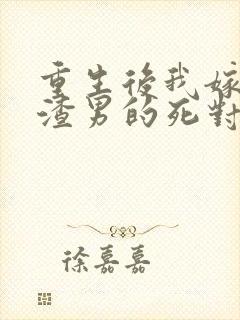 重生後我嫁
渣男的死對
徐嘉嘉